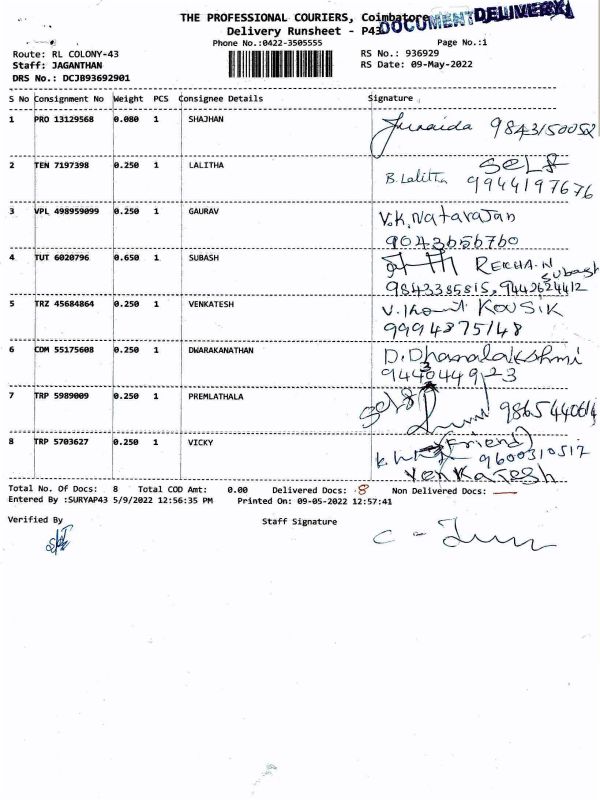 THE PROFESSIONAL COURIERS, Coimbatore
DOCUMENT DELIVERY
Delivery Runsheet - P43
Phone No.:0422-3505555 Page No.:1
Route: RL COLONY-43 RS No.: 936929
Staff: JAGANTHAN RS Date: 09-May-2022
DRS No.: DCJB93692901
S No Consignment No Weight PCS Consignee Details Signature
1 PRO 13129568 0.080 1 SHAJHAN Junaida 9843150052
2 TEN 7197398 0.250 1 LALITHA SELF
B. Lalitha 9944197676
3 VPL 498959099 0.250 1 GAURAV V.K. Natarajan
9043656760
4 TUT 6020796 0.650 1 SUBASH REKHA.N Subash
9843385815, 9442624412
5 TRZ 45684864 0.250 1 VENKATESH KOUSIK
9994875148
6 COM 55175608 0.250 1 DWARAKANATHAN D. Dhanalakshmi
7 TRP 5989009 0.250 1 PREMLATHALA Self 9865440614
8 TRP 5703627 0.250 1 VICKY (Friend)
9600310517
Venkatesh
Total No. Of Docs: 8 Total COD Amt: 0.00 Delivered Docs: 8 Non Delivered Docs: —
Entered By :SURYAP43 5/9/2022 12:56:35 PM Printed On: 09-05-2022 12:57:41
Verified By Staff Signature